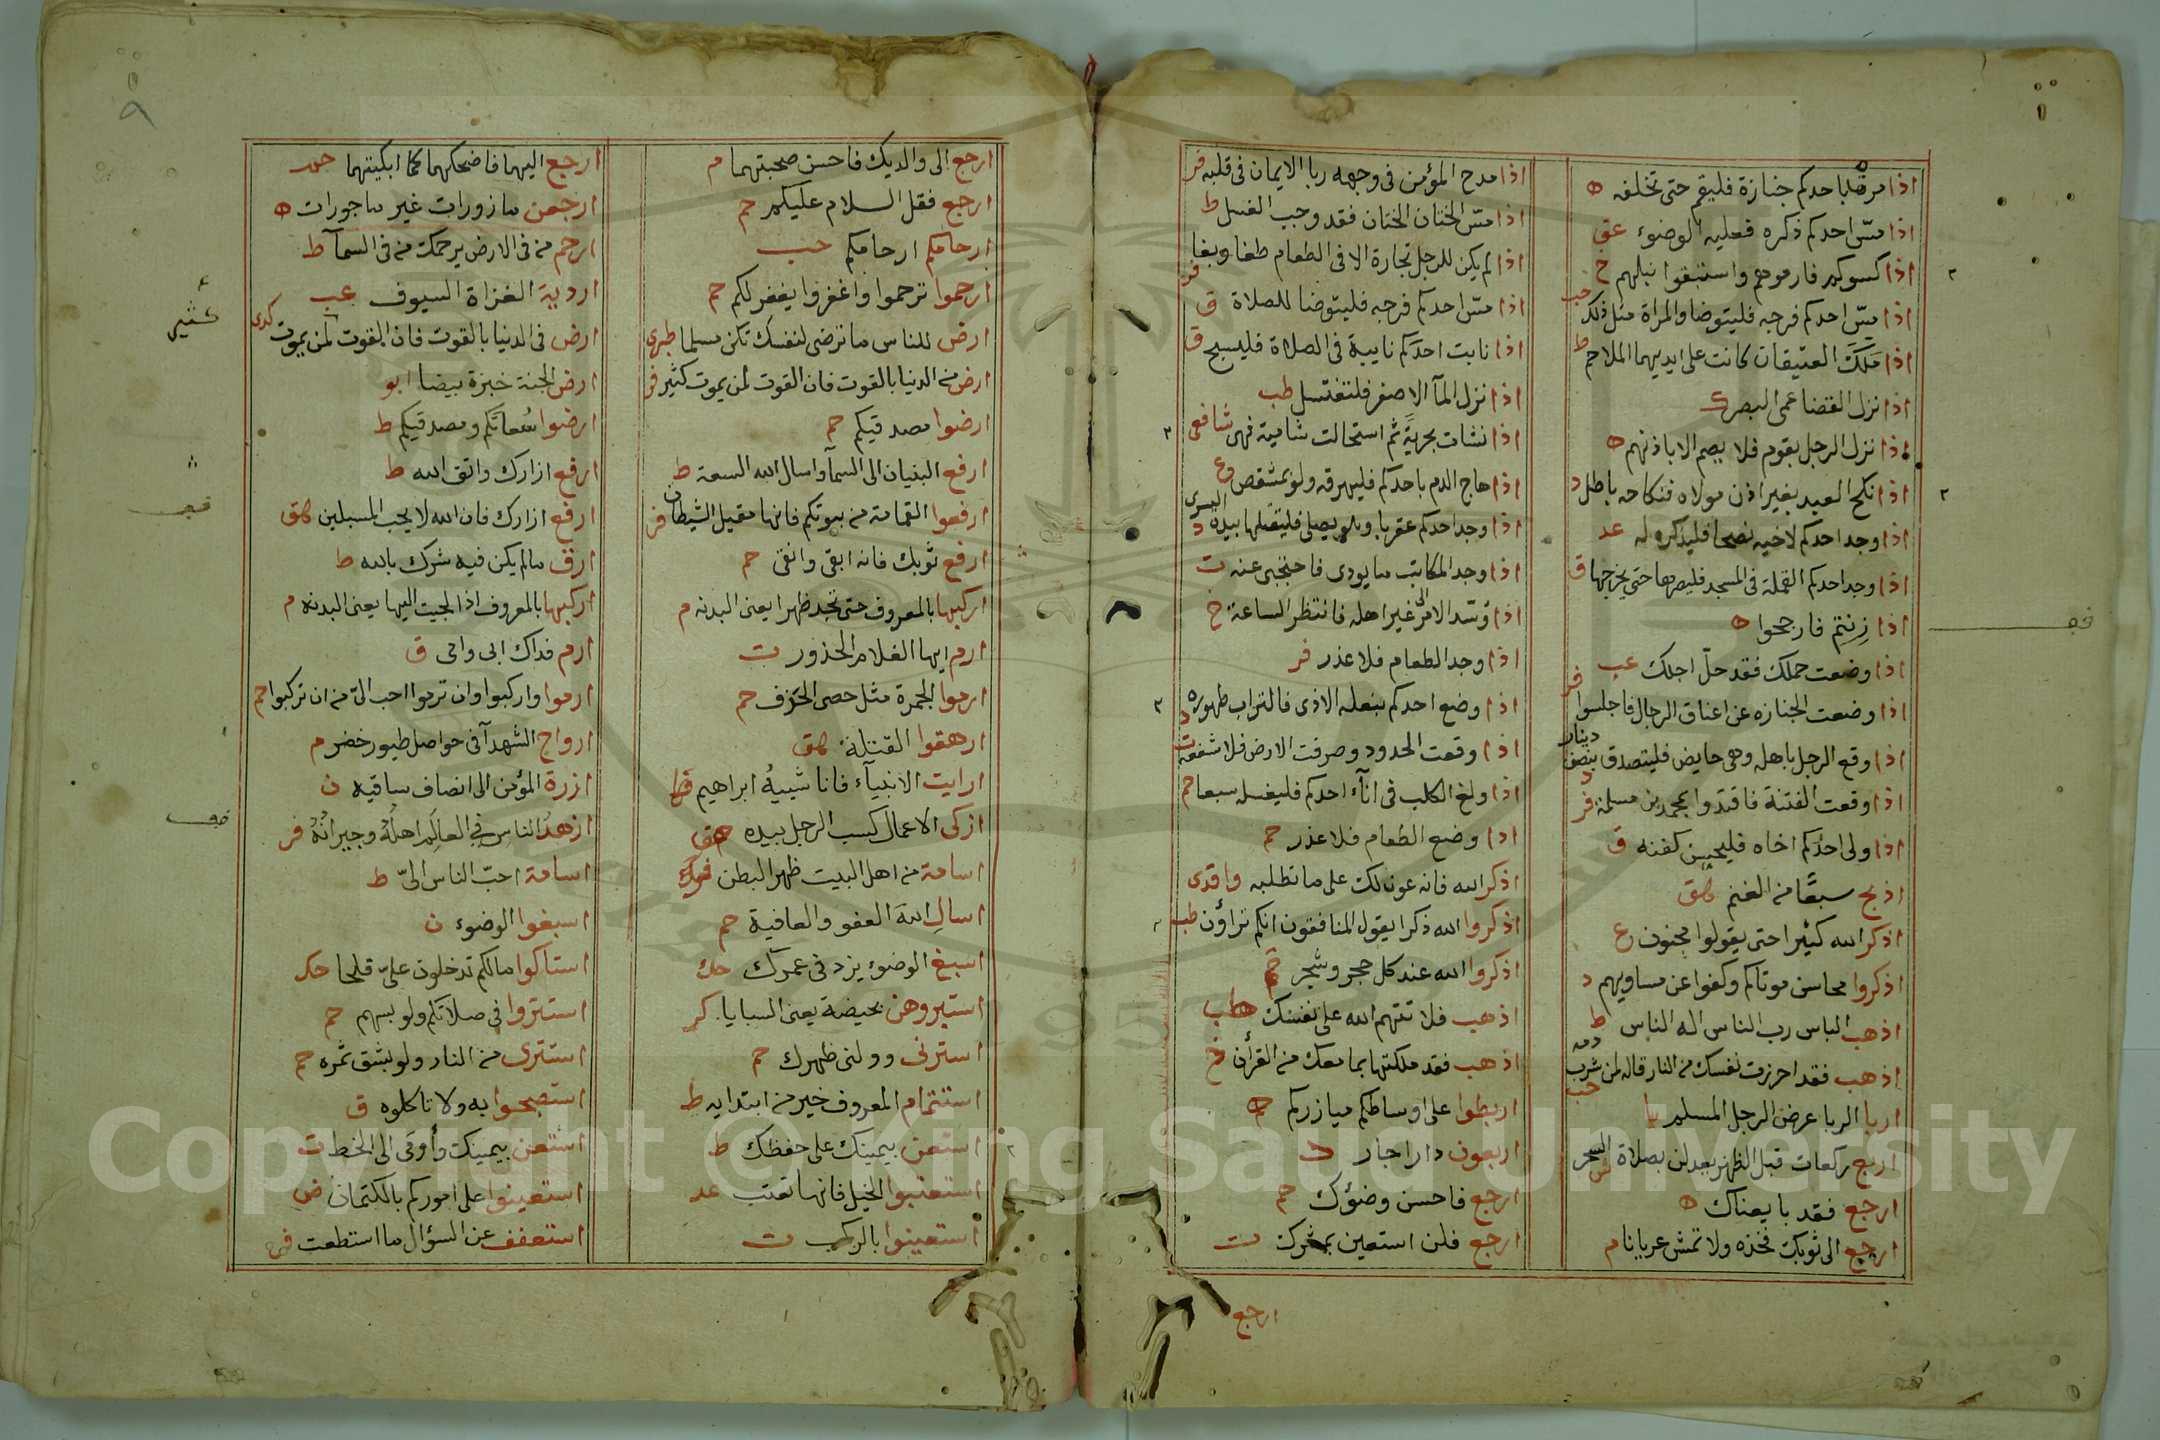 اذا مرت باحدكم جنازة فليقم حتى تخلفه ه
اذا مسّ احدكم ذكره فعليه الوضوء عق
اذا فارموهم واستبقوا نبلهم خ
اذا مسّ احدكم فرجه فليتوضا والمراة مثل ذلك حب
اذا مَلَكَ العتيقان كانت على ايديهما الملاحم ط
اذا نزل القضا عمى البصر ك
اذا نزل الرجل بقوم فلا يصم الا باذنهم ه
اذا نكح العبد بغير اذن مولاه فنكاحه باطل د
اذا وجد احدكم لاخيه نصحا فليذكره له عد
اذا وجد احدكم القملة في المسجد فليصرها حتى يخرجها ق
اذا زِنتم فارجحوا ه
اذا وضعت حملك فقد حلّ اجلك عب
اذا وضعت الجنازه عن اعناق الرجال فاجلسوا فر
اذا وقع الرجل باهله وهي حايض فليتصدق بنصف دينار د
اذا وقعت الفتنة فاقتدوا بمحمد بن مسلمة فر
اذا ولى احدكم اخاه فليحسن كفنه ق
اذبح سبعًا من الغنم هق
اذكر الله كثيرا حتى يقولوا مجنون ع
اذكروا محاسن موتاكم وكفوا عن مساويهم د
اذهب الباس رب الناس اله الناس ط
اذهب فقد احرزت نفسك من النار قاله لمن شرب دمه حب
اربا الربا عرض الرجل المسلم
اربع ركعات قبل الظهر يعدلن بصلاة السحر ش
ارجع فقد بايعناك ه
ارجع الى ثوبك فخذه ولا تمش عريانا م
اذا مدح المؤمن في وجهه ربا الايمان في قلبه فر
اذا مسّ الختان الختان فقد وجب الغسل ط
اذا لم يكن للرجل تجارة الا في الطعام طغا وبغا فر
اذا مسّ احدكم فرجه فليتوضا للصلاة ق
اذا نابت احدكم نايبة في الصلاة فليسبح ق
اذا نزل المآ الاصفر فلتغتسل طب
اذا نشات بحريةً ثم استحالت شامية فهى شافعى
اذا هاج الدم باحدكم فليهرقه ولو بمشقص وع
اذا وجد احدكم عقربا وهو يصلي فليقتلها بيده اليسرى د
اذا وجد المكاتب ما يودى فاحتجبى عنه ت
اذا وُسّد الامر الى غير اهله فانتظر الساعة خ
اذا وجد الطعام فلا عذر فر
اذا وضع احدكم بنعله الاذى فالتراب طهوره د
اذا وقعت الحدود وصرفت الارض فلا شفعة ت
اذا ولغ الكلب في انآء احدكم فليغسله سبعا حم
اذا وضع الطعام فلا عذر حم
اذكر الله فانه عون لك على ما تطلبه واقدى
اذكروا الله ذكرا يقول المنافقون انكم تراؤن طب
اذكروا الله عند كل حجر وشجر حم
اذهب فلا تتهم الله على نفسك
اذهب فقد ملكتها بما معك من القرأن خ
اربطوا على اوساطكم ميازركم ه
اربعون دارا جار د
ارجع فاحسن وضؤك حم
ارجع فلن استعين بمشرك ت
ارجع
ارجع الى والديك فاحسن صحبتهما م
ارجع فقل السلام عليكم حم
ارحامكم ارحامكم حب
ارحموا ترحموا واغفروا يغفر لكم حم
ارض للناس ما ترضى لنفسك تكن مسلما طبرى
ارض من الدنيا بالقوت فان القوت لمن يموت كثير فر
ارضوا مصدقيكم حم
ارفع البنيان الى السمآ واسال الله السعة ط
ارفعوا القمامة من بيوتكم فانها مقيل الشيطان فر
ارفع ثوبك فانه ابقى وانقى حم
اركبها بالمعروف حتى تجد ظهرا يعنى البدنه م
ارم ايها الغلام الحذور ت
ارموا الجمرة مثل حصى الخزف حم
ارهقوا القتلة هق
ارايت الانبيآء فانا شبيهُ ابراهيم
ازكى الاعمال كسب الرجل بيده هق
اسامة من اهل البيت ظهر البطن
اسال الله العفو والعافية حم
اسبغ الوضوء يزد في عمرك حك
استبروهن بحيضة يعنى السبايا كر
استرنى وولنى ظهرك حم
استتمام المعروف خير من ابتدايه ط
استعن بيمينك على حفظك ط
استعتبوا الخيل فانها تعتب عد
استعينوا بالركب ت
٩
ارجع اليهما فاضحكهما كما ابكيتهما حمد
ارجعن مازورات غير ماجورات ه
ارحم من في الارض يرحمك من في السمآ ط
اردية الغزاة السيوف عب
ارض في الدنيا بالقوت فان القوت لمن يموت كدى
كثير
ارض الجنة خبزة بيضا ابو
ارضوا سُعاتَكم ومصدقيكم ط
ارفع ازارك واتق الله ط
ارفع ازارك فان الله لا يحب المسبلين هق
ارق مالم يكن فيه شرك بالله ط
اركبها بالمعروف اذا الجيت اليها يعنى البدنه م
ارم فداك ابى وامى ق
ارموا واركبوا وان ترموا احب الىّ من ان تركبوا حم
ارواح الشهدآ في حواصل طيور خضر م
ازرة المؤمن الى انصاف ساقيه ن
ازهدُ الناس في العالم اهلهُ وجيرانهُ فر
اسامة احبّ الناس الىّ ط
اسبغوا الوضوء ن
استاكوا مالكم تدخلون علىّ قلحا حك
استتروا في صلاتكم ولو بسهم حم
استترى من النار ولو بشق تمره حم
استصبحوا به ولا تاكلوه ق
استعن بيمينك واوقى الى الخط ت
استعينوا على اموركم بالكتمان ض
استعفف عن السؤال ما استطعت فر
Copyright © King Saud University